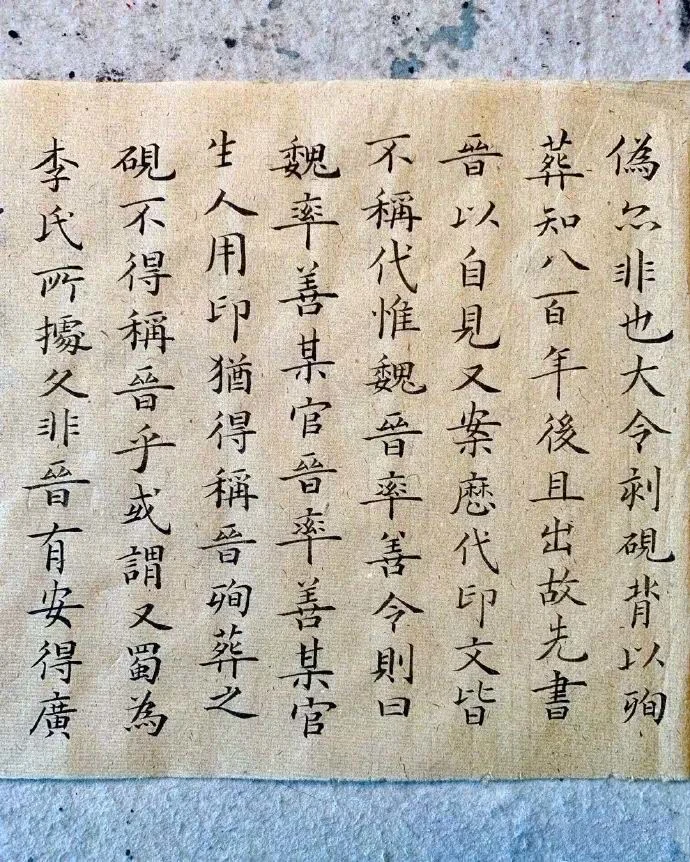 偽尒非也大令刻硯背以殉
葬知八百年後且出故先書
晉以自見又案歷代印文皆
不稱代惟魏晉率善令則曰
魏率善某官晉率善某官
生人用印猶得稱晉殉葬之
硯不得稱晉乎或謂又蜀為
李氏所據久非晉有安得廣